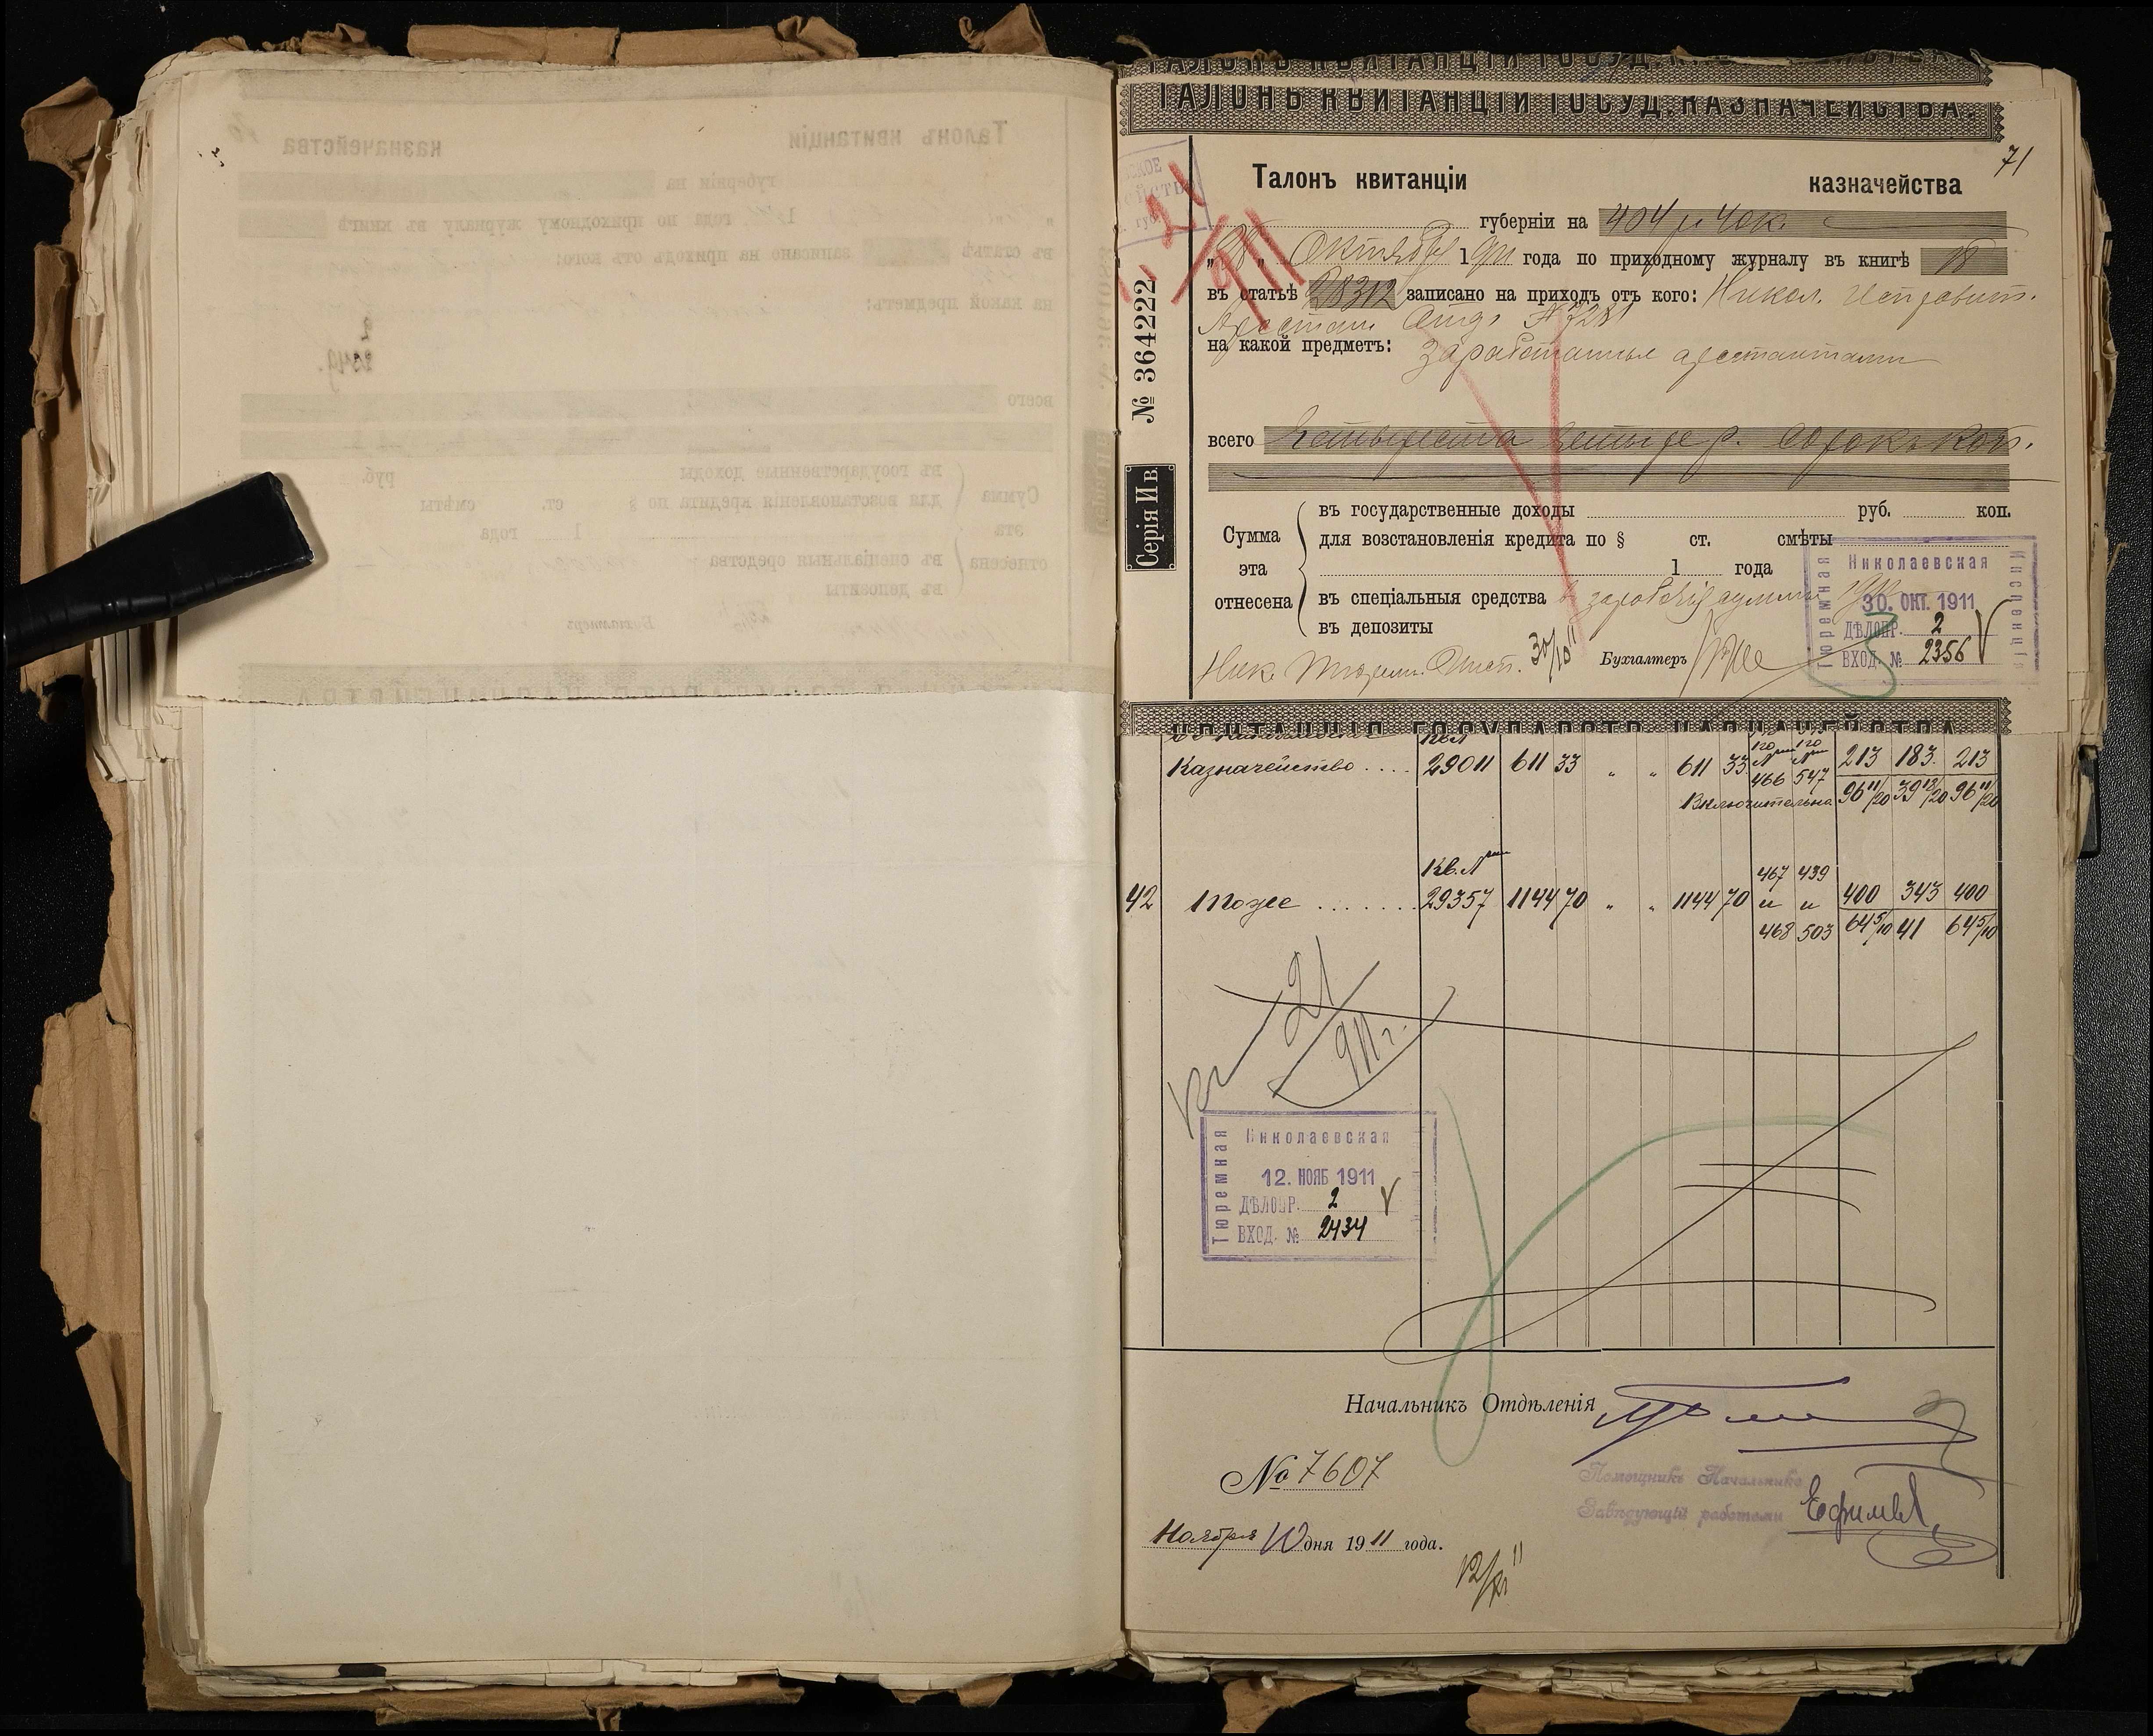 ТАЛОНЪ КВИТАНЦІИ ГОСУД. КАЗНАЧЕЙСТВА.
71
Талонъ квитанціи казначейства
губерніи на 404 р. 40 к.
Октября 1911 года по приходному журналу въ книгѣ 18
въ статьѣ 28312 записано на приходъ отъ кого: Никол. Исправит.
Арестан. Отд. № 7281
на какой предметъ: Заработанныя арестантами
№ 364222
всего Четыреста четыре р. сорокъ коп.
Серія И в.
въ государственные доходы руб. коп.
Сумма для возстановленія кредита по § ст. смѣты
эта 1 года
отнесена въ спеціальныя средства
въ депозиты
Ник. Тюрем. Инсп. 30/10 11 Бухгалтеръ
Николаевская
Тюремная
Инспекція
30. ОКТ. 1911
ДѢЛОПР. 2
ВХОД. № 2356
КВИТАНЦІЯ ГОСУДАРСТВ. КАЗНАЧЕЙСТВА
Казначейство .... 29011 611 33 " " 611 33 466 547 213 183. 213
Включительна 96 11/20 39 13/20 96 11/20
Кв. № 467 439
42 Тоже ....... 29357 1144 70 " " 1144 70 и и 400 343 400
468 503 64 5/10 41 64 5/10
21/911 г.
Николаевская
Тюремная
12. НОЯБ 1911
ДѢЛОПР. 2
ВХОД. № 2434
Начальникъ Отдѣленія
№ 7607
Помощникъ Начальника
Завѣдующій работами Ефимов
Ноября 10 дня 1911 года.